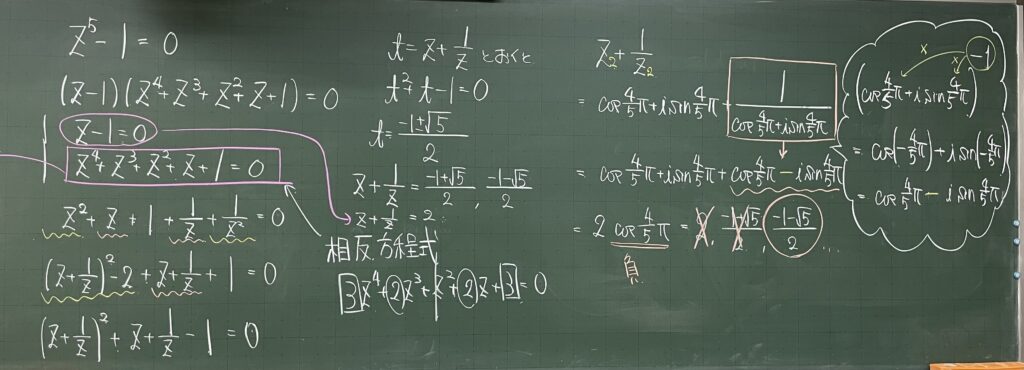 z⁵ − 1 = 0
(z−1)(z⁴+z³+z²+z+1) = 0
z−1=0
z⁴+z³+z²+z+1=0
z²+z+1+1/z+1/z²=0
(z+1/z)²−2+z+1/z+1=0
(z+1/z)²+z+1/z−1=0
t=z+1/z とおくと
t²+t−1=0
t=(−1±√5)/2
z+1/z=(−1+√5)/2, (−1−√5)/2
z+1/z=2
相反方程式
3z⁴+2z³+z²+2z+3=0
z₂+1/z₂
=cos 4/5 π+i sin 4/5 π+1/(cos 4/5 π+i sin 4/5 π)
=cos 4/5 π+i sin 4/5 π+cos 4/5 π−i sin 4/5 π
=2 cos 4/5 π=2, (−1+√5)/2, (−1−√5)/2 ...
負
× × 
(cos 4/5 π+i sin 4/5 π)⁻¹
=cos(−4/5 π)+i sin(−4/5 π)
=cos 4/5 π−i sin 4/5 π